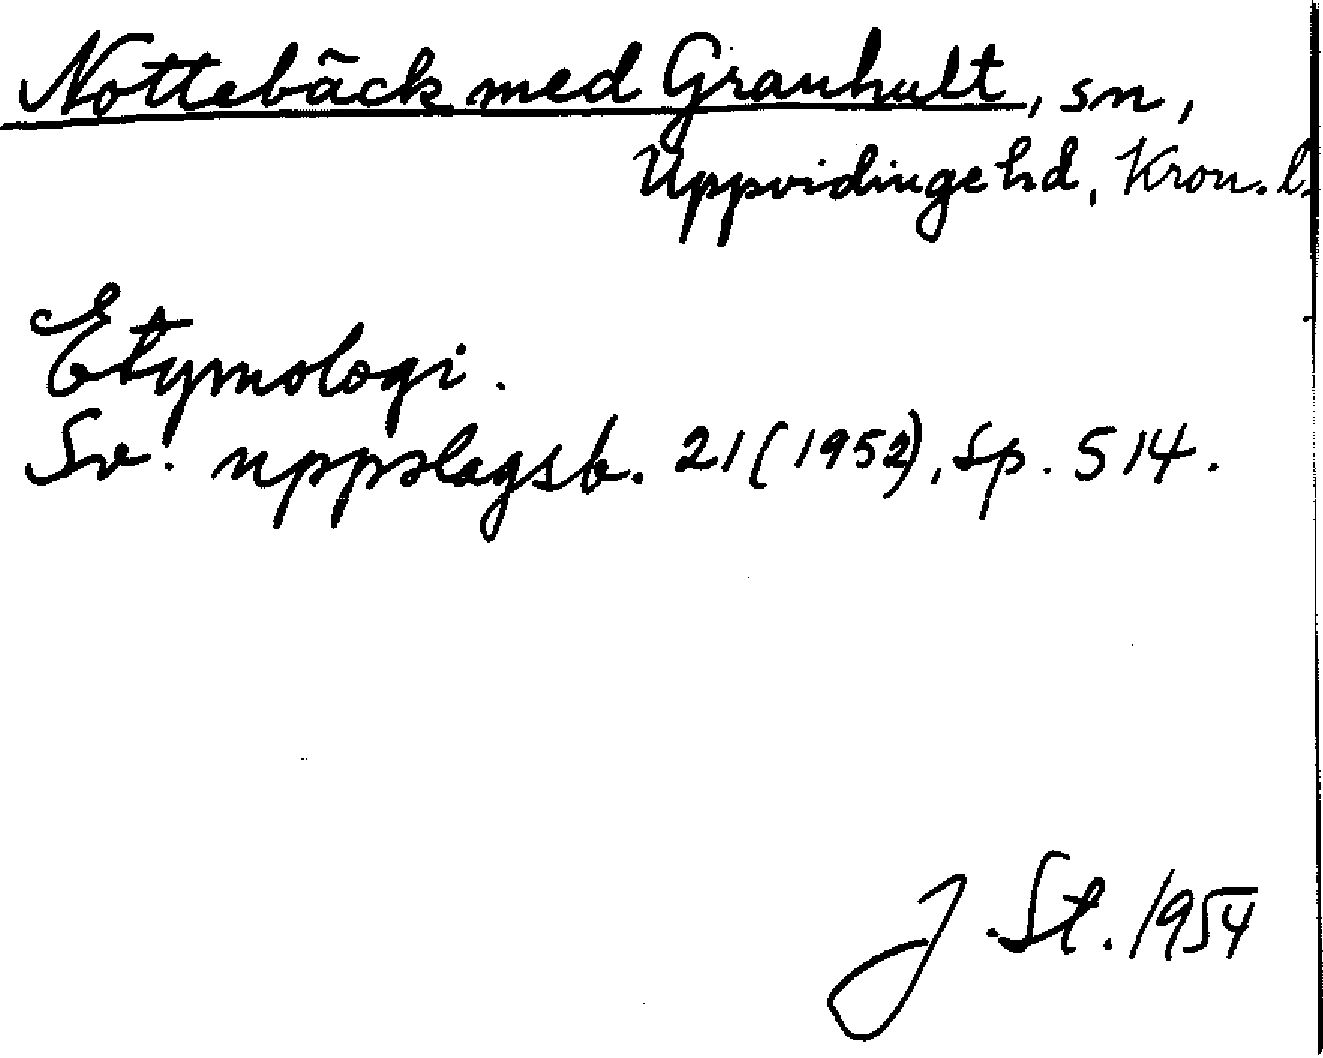 Nottebäck med Granhult, sn,
Uppvidinge hd, Kron. l.
Etymologi.
Sv. uppslagsb. 21 (1952), sp. 514.
J. St. 1954